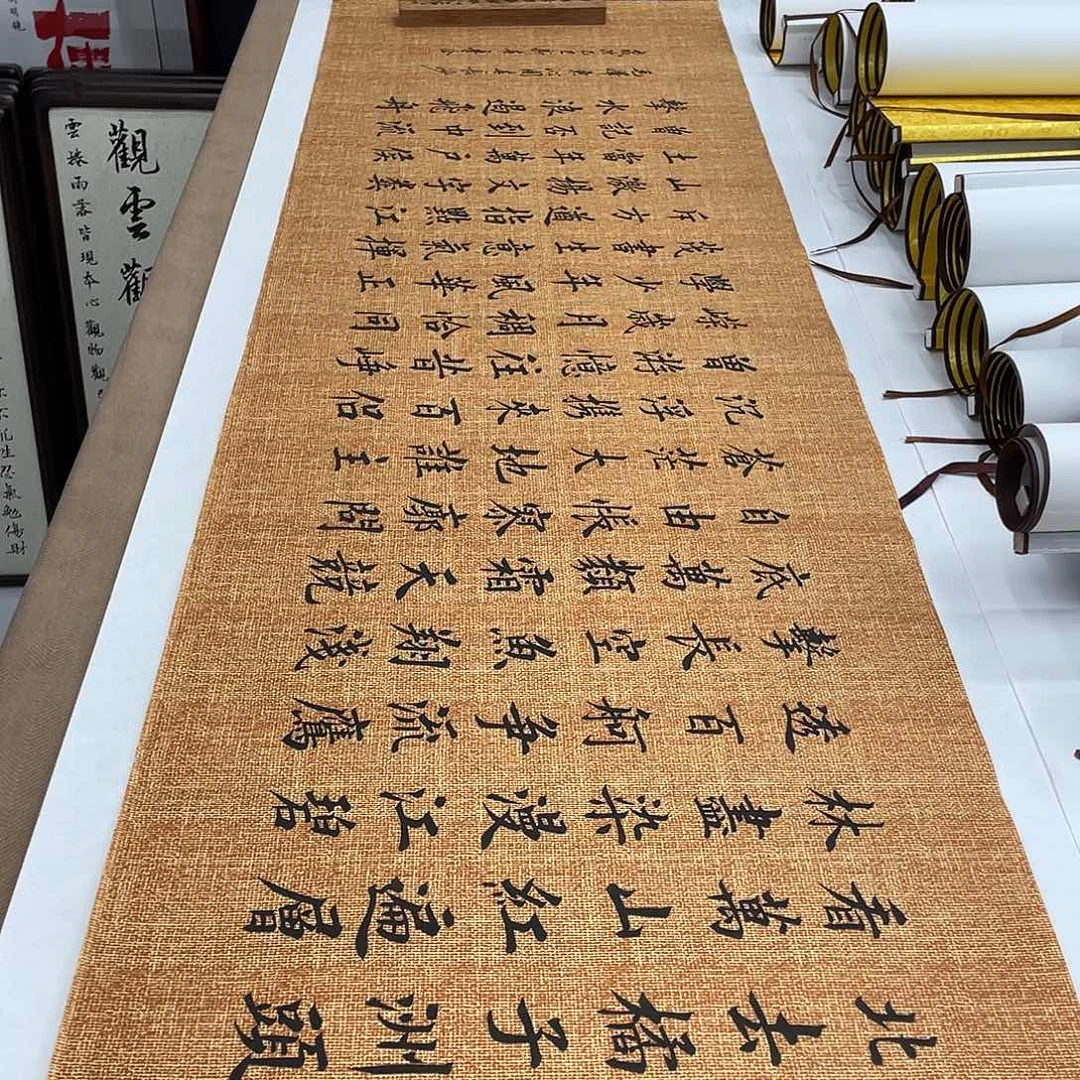 北去橘子洲頭
看萬山紅遍層
林盡染漫江碧
透百舸爭流鷹
擊長空魚翔淺
底萬類霜天競
自由悵寥廓問
蒼茫大地誰主
沉浮攜來百侶
曾游憶往昔崢
嶸歲月稠恰同
學少年風華正
茂書生意氣揮
斥方遒指點江
山激揚文字糞
土當年萬戶侯
曾記否到中流
擊水浪遏飛舟
觀雲觀
雲捲雨落皆現本心觀物觀
生忍氣勉傷財